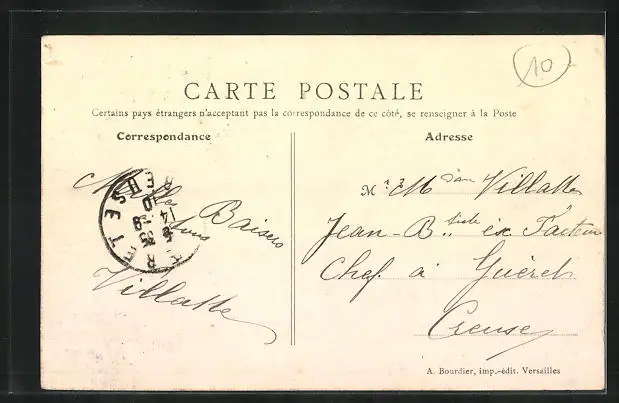 10
CARTE POSTALE
Certains pays étrangers n'acceptant pas la correspondance de ce côté, se renseigner à la Poste
Correspondance
Baisers
Villatte
Adresse
M Villatte
Jean-B.te ex Facteur
Chef à Guéret
Creuse
A. Bourdier, imp.-édit. Versailles